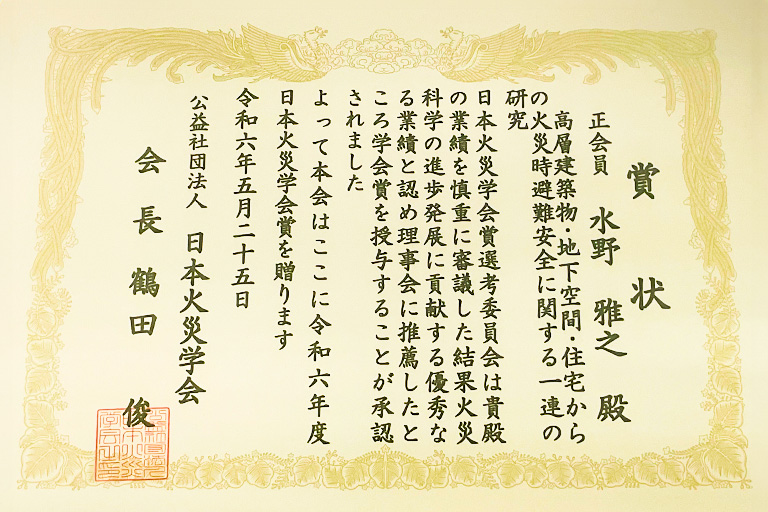 賞状
正会員 水野 雅之 殿
高層建築物・地下空間・住宅から
の火災時避難安全に関する一連の
研究
日本火災学会賞選考委員会は貴殿
の業績を慎重に審議した結果火災
科学の進歩発展に貢献する優秀な
る業績と認め理事会に推薦したと
ころ学会賞を授与することが承認
されました
よって本会はここに令和六年度
日本火災学会賞を贈ります
令和六年五月二十五日
公益社団法人 日本火災学会
会長 鶴田 俊